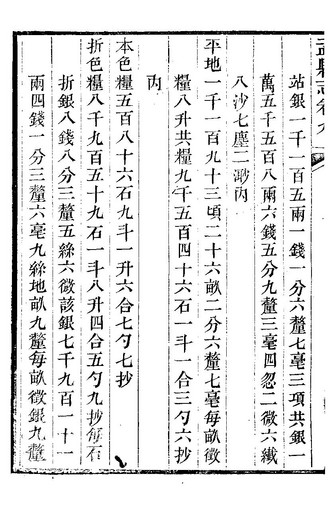 站銀一千一百五兩一錢一分六釐七毫三項共銀一
萬五千五百八兩六錢五分九釐三毫四忽二微六纖
八沙七塵二渺內
平地一千一百九十三頃二十六畝二分六釐七毫每畝徵
糧八升共糧九千五百四十六石一斗一合三勺六抄
內
本色糧五百八十六石九斗一升六合七勺七抄
折色糧八千九百五十九石一斗八升四合五勺九抄每石
折銀八錢八分三釐五絲六微該銀七千九百一十一
兩四錢一分三釐六毫九絲地畝九釐每畝徵銀九釐